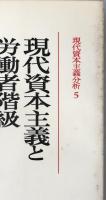 現代資本主義分析 5
現代資本主義と
労働者階級